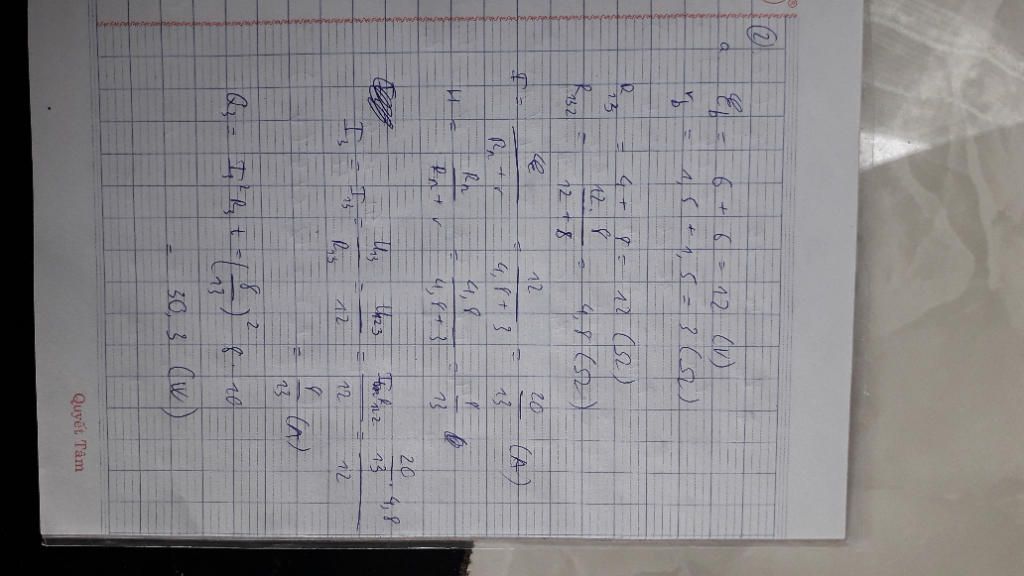 ②
a, ℰb = 6 + 6 = 12 (V)
rb = 1,5 + 1,5 = 3 (Ω)
R13 = 4 + 8 = 12 (Ω)
R132 = 12.8 / 12 + 8 = 4,8 (Ω)
I = ℰ / RN + r = 12 / 4,8 + 3 = 20 / 13 (A)
H = RN / RN + r = 4,8 / 4,8 + 3 = 8 / 13
I3 = I13 = U13 / R13 = U123 / 12 = R132 / 12 = 20/13 . 4,8 / 12
= 8 / 13 (A)
Q3 = I3² R3 t = (8 / 13)² 8 . 10
= 30,3 (W)
Quyết Tâm